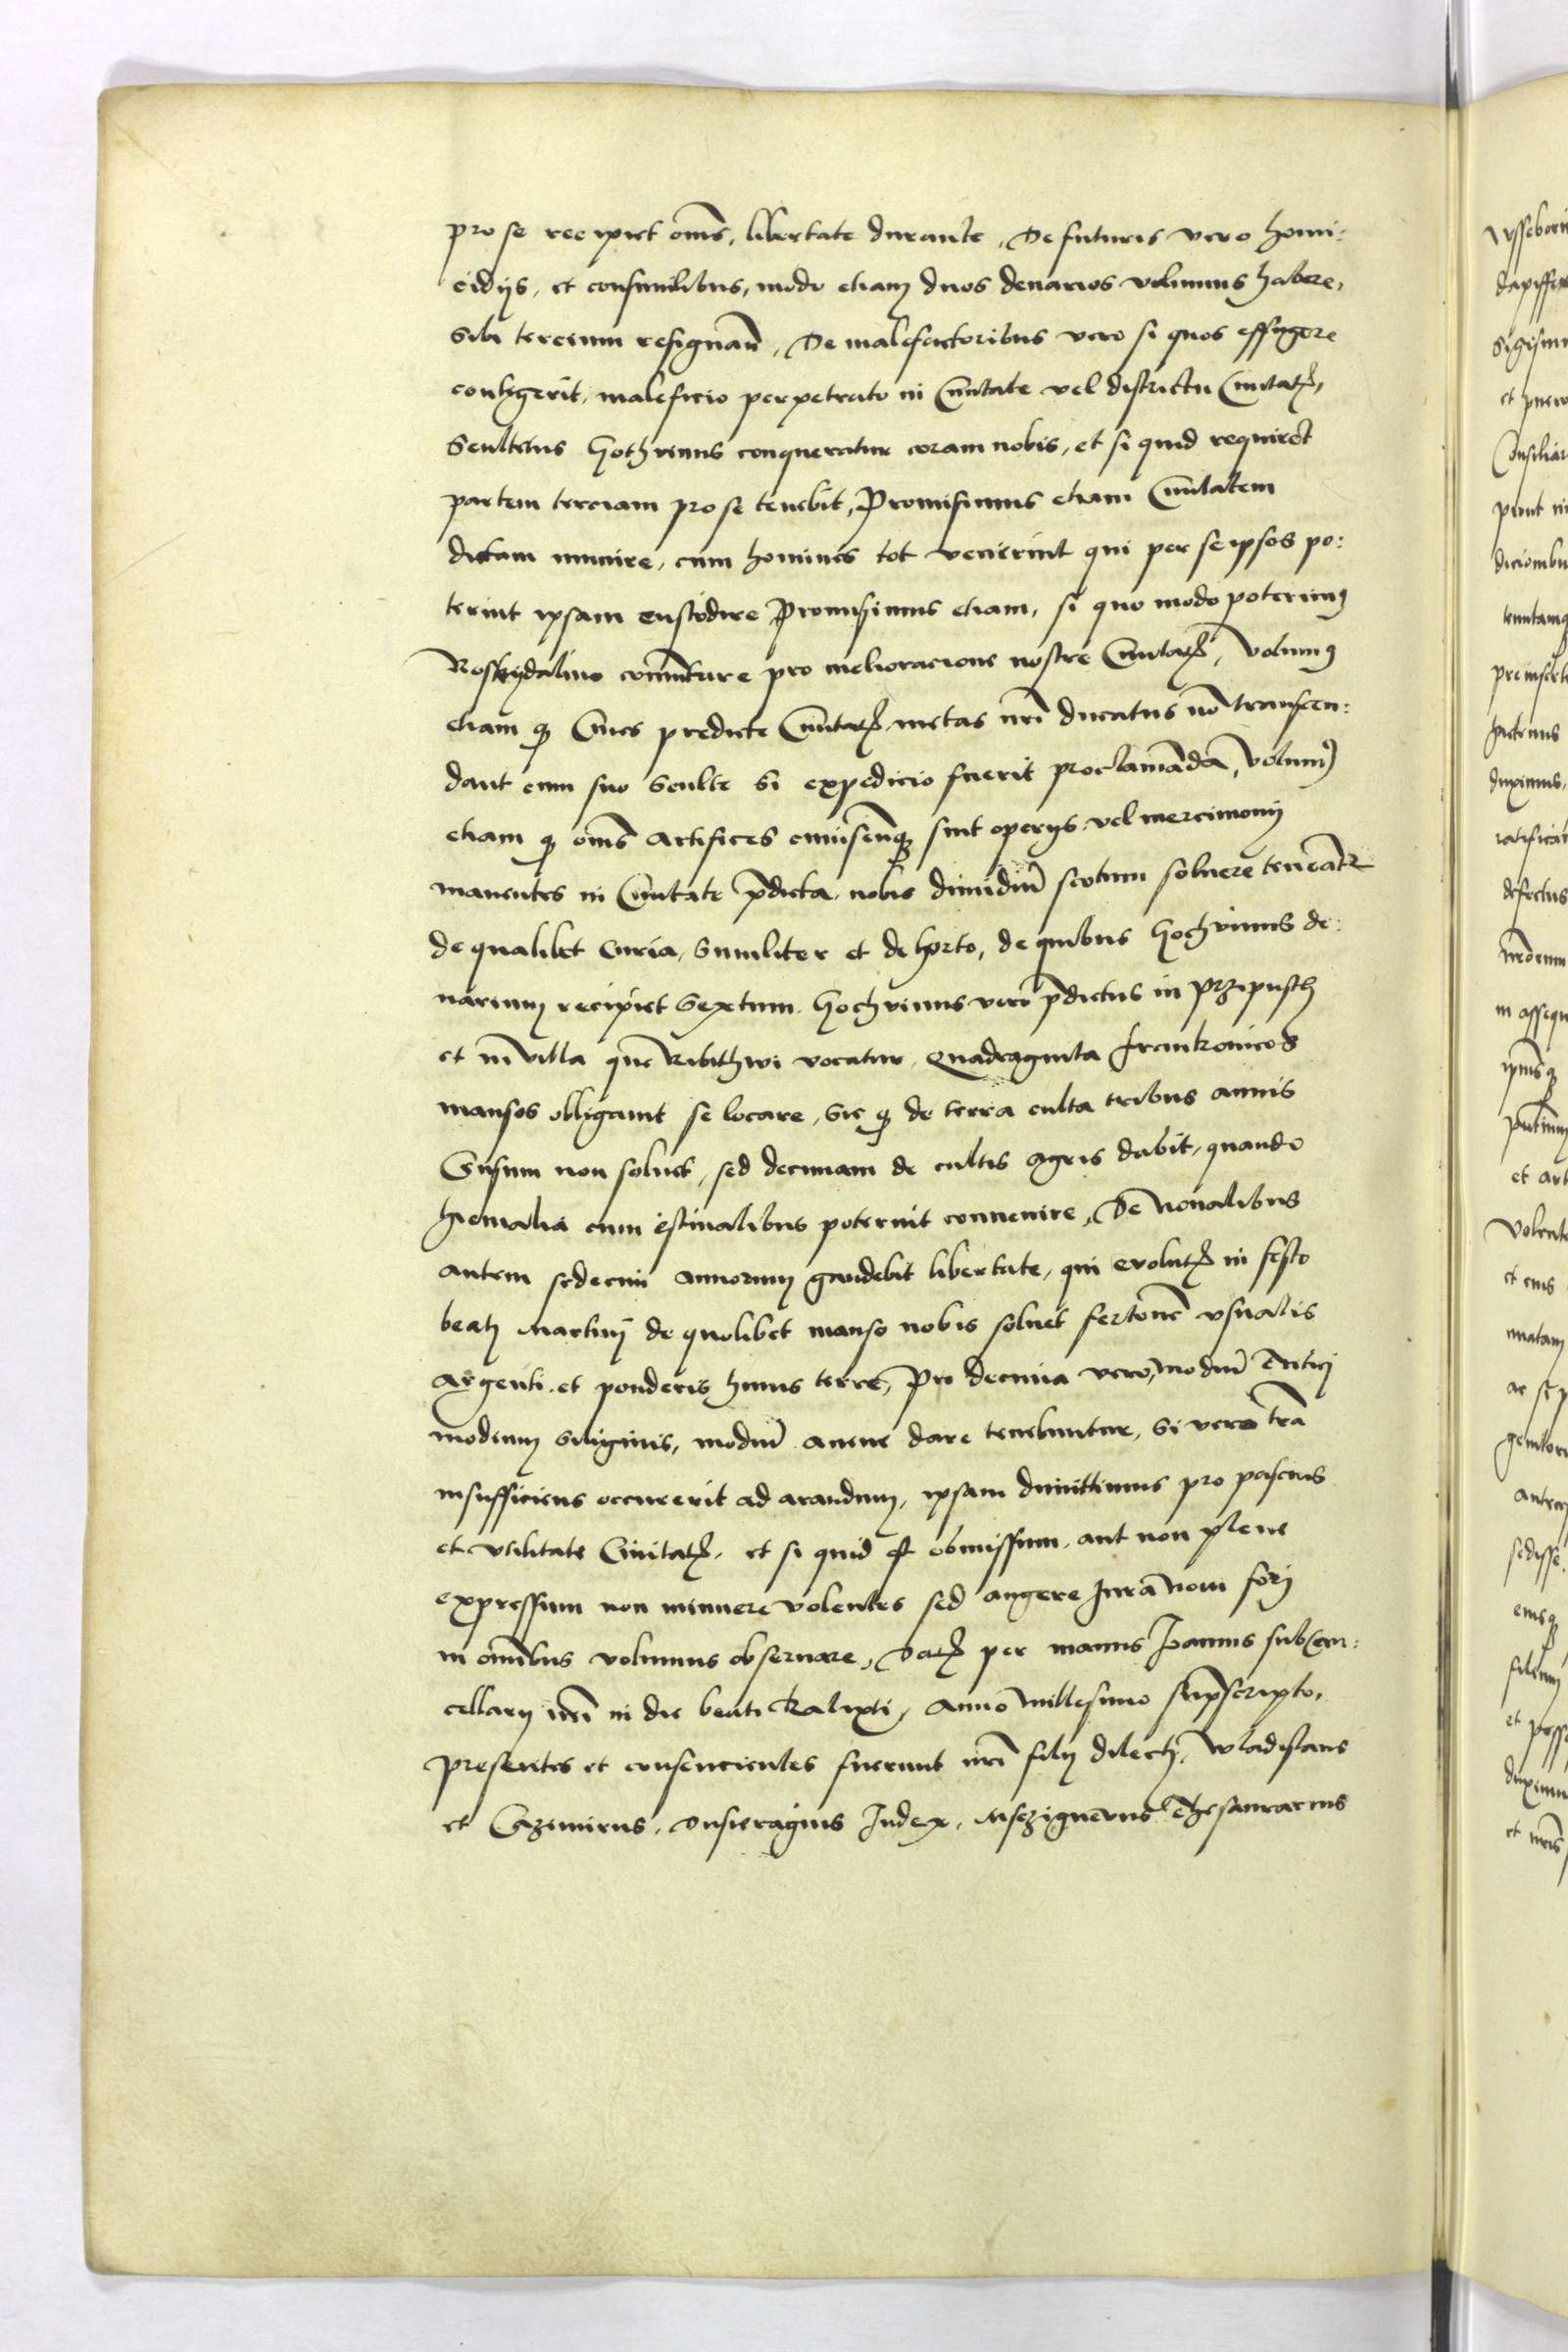 pro se recipiet oms, libertate durante, De futuris vero homi:
cidijs, et consimilibus, modo etiam duos denarios volumus habere,
Sibi tercium resignan, De malefactoribus vero si quos effugere
contigerit, maleficio perpetrato in Ciuitate vel districtu Ciuitat,
Scultetus Gothinus conqueratur coram nobis, et si quid requiret
partem terciam pro se tenebit, Promisimus etiam Ciuitatem
dictam munire, cum homines tot venerint qui per se ipsos po:
terint ipsam custodire Promisimus etiam, si quo modo poterimus
Rostkydalino commutare pro melioracione nostre Ciuitat, Volumus
etiam q Ciues predicte Ciuitat metas nri ducatus no transcen:
dant cum suo Sculte Si expedicio fuerit proclamada, Volumus
etiam q oms Artifices cuiuscuq sint operys vel mercimonij
manentes in Ciuitate pdicta nobis dimidiu scotum soluere teneatr
de qualibet Curia, Similiter et de horto, de quibus Gochinus de:
narium recipiet Sextum Gochuinus vero pdictus in Przipusth
et in villa que Ribithwi vocatur Quadraginta frankonicos
mansos obligauit se locare, Sic q de terra culta tribus annis
Censum non soluet, sed decimam de cultis Agris dabit, quando
hiemalia cum estiualibus poterint conuenire, De Noualibus
antem sedecim annorum gaudebit libertate, qui evolut in festo
beati Martinj de quolibet manso nobis soluet fertone vsualis
Argenti et ponderis huius terre, Pro decima vero modiu Tritici
modium Siliginis, modiu auene dare tenebuntur, Si vero tra
insufficiens occurerit ad arandum, ipsam dimittimus pro pascuis
et vtilitate Ciuitat, et si quid est obmissum aut non plene
expressum non minuere volentes sed augere Iura Noui forj
in omibus volumus obseruare, Dat per manus Joannis subCan:
cellarij nri in die beati Kalixti, Anno Millesimo supscripto,
presentes et consencientes fuerunt nri filij dilecti, Wladislaus
et Cazimirus, Dusieragius Judex, Msczignewus Thesaurarius